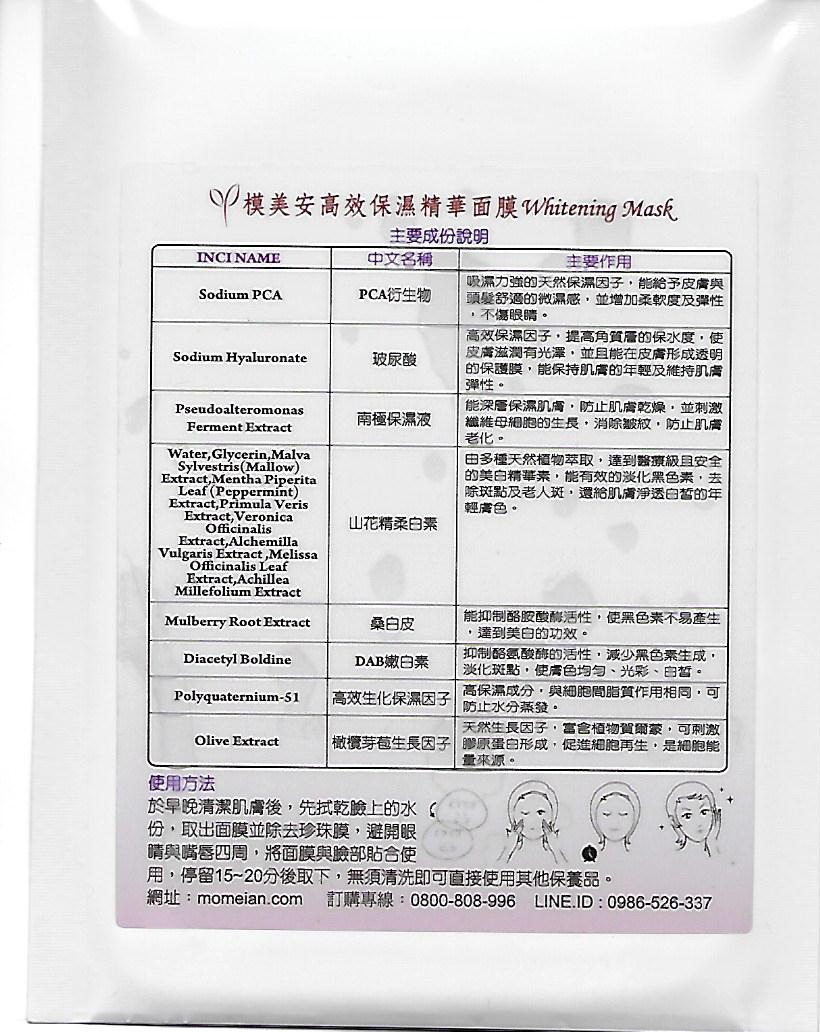 模美安高效保濕精華面膜 Whitening Mask
主要成份說明
INCI NAME 中文名稱 主要作用
Sodium PCA
PCA衍生物
吸濕力強的天然保濕因子，能給予皮膚與
頭髮舒適的微濕感，並增加柔軟度及彈性
，不傷眼睛。
Sodium Hyaluronate
玻尿酸
高效保濕因子，提高角質層的保水度，使
皮膚滋潤有光澤，並且能在皮膚形成透明
的保護膜，能保持肌膚的年輕及維持肌膚
彈性。
Pseudoalteromonas
Ferment Extract
南極保濕液
能深層保濕肌膚，防止肌膚乾燥，並刺激
纖維母細胞的生長，消除皺紋，防止肌膚
老化。
Water,Glycerin,Malva
Sylvestris(Mallow)
Extract,Mentha Piperita
Leaf (Peppermint)
Extract,Primula Veris
Extract,Veronica
Officinalis
Extract,Alchemilla
Vulgaris Extract ,Melissa
Officinalis Leaf
Extract,Achillea
Millefolium Extract
山花精柔白素
由多種天然植物萃取，達到醫療級且安全
的美白精華素，能有效的淡化黑色素，去
除斑點及老人斑，還給肌膚淨透白皙的年
輕膚色。
Mulberry Root Extract
桑白皮
能抑制酪胺酸酶活性，使黑色素不易產生
，達到美白的功效。
Diacetyl Boldine
DAB嫩白素
抑制酪氨酸酶的活性，減少黑色素生成，
淡化斑點，使膚色均勻、光彩、白皙。
Polyquaternium-51
高效生化保濕因子
高保濕成分，與細胞間脂質作用相同，可
防止水分蒸發。
Olive Extract
橄欖芽苞生長因子
天然生長因子，富含植物賀爾蒙，可刺激
膠原蛋白形成，促進細胞再生，是細胞能
量來源。
使用方法
於早晚清潔肌膚後，先拭乾臉上的水
份，取出面膜並除去珍珠膜，避開眼
睛與嘴唇四周，將面膜與臉部貼合使
用，停留15~20分後取下，無須清洗即可直接使用其他保養品。
網址：momeian.com 訂購專線：0800-808-996 LINE.ID : 0986-526-337